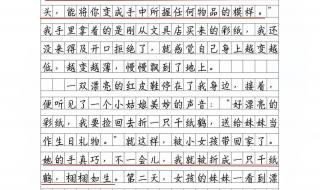 头，能将你变成手中所握任何物品的模样。”
我手里拿着的是刚从文具店买来的彩纸，我还
没来得及开口拒绝了，就感觉自己身上越变越
低，越变越薄，慢慢飘到了地上。
一双漂亮的红皮鞋停在了我身边，接着，
便听见了一个小姑娘美妙的声音：“好漂亮的
彩纸，我要捡回去折一只千纸鹤，送给妹妹当
作生日礼物。”就这样，被小女孩带回家了。
她的手真巧，不一会儿，我就被折成一只千纸
鹤，栩栩如生。第二天，女孩的妹妹一看到漂